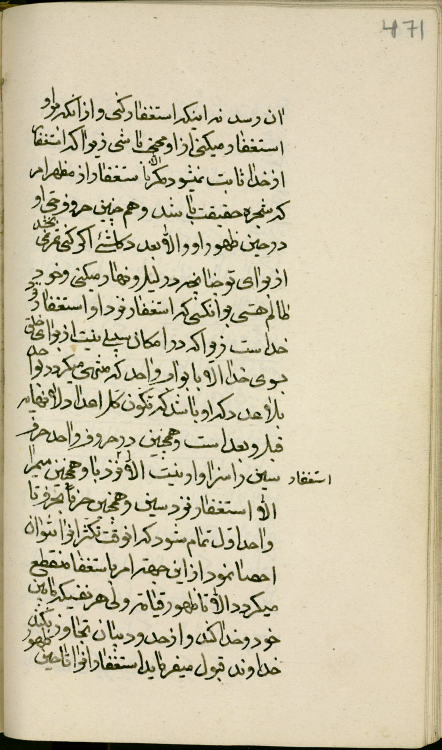 471
ان رسد نه اینکه استغفار کنی و از آنکه مراو
استغفار میکنی از او محتجب باشی زیرا که استغفار
از خدا ثابت نمیشود مگر باستغفار از مظهر امر
که شجره حقیقت باشد و هم چنین حروف حی او
در حین ظهور او والا بعد
از برای تو چنانچه در لیل و نهار میکنی وجود
ظالم هستی بر آنکسی که استغفار خود او استغفار
خداست زیرا که در امکان سبیلی نیست از برای خلق
بسوی خدا الا بابواب واحد که منتهی میگردد
بلا عدد که او باشد که تکون کل اعداد لا نهایه
قبل و بعد است و همچنین در حروف واحد حرف
سین را سزاوار نیست الا خود با و همچنین میم را
استغفار
الا استغفار خود سین و همچنین حرف بحرف تا
واحد اول تمام شود که آنوقت تکثر انرا نتوان
احصا نمود از این جهة امر باستغفار منقطع
میگردد الا تا ظهور قیامه ولی هر نفسیکه ما بین
خود و خدا کند و از حدود بیان تجاوز نکند
خداوند قبول میفرماید استغفار انرا تا حین ظهور